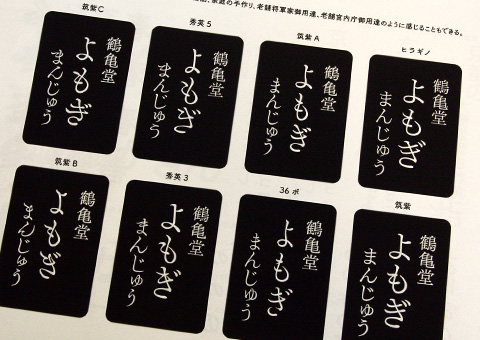 家庭の手作り、老舗将軍家御用達、老舗宮内庁御用達のように感じることもできる。
筑紫C
鶴亀堂
よもぎ
まんじゅう
秀英5
鶴亀堂
よもぎ
まんじゅう
筑紫A
鶴亀堂
よもぎ
まんじゅう
ヒラギノ
鶴亀堂
よもぎ
まんじゅう
筑紫B
鶴亀堂
よもぎ
まんじゅう
秀英3
鶴亀堂
よもぎ
まんじゅう
36ポ
鶴亀堂
よもぎ
まんじゅう
筑紫
鶴亀堂
よもぎ
まんじゅう